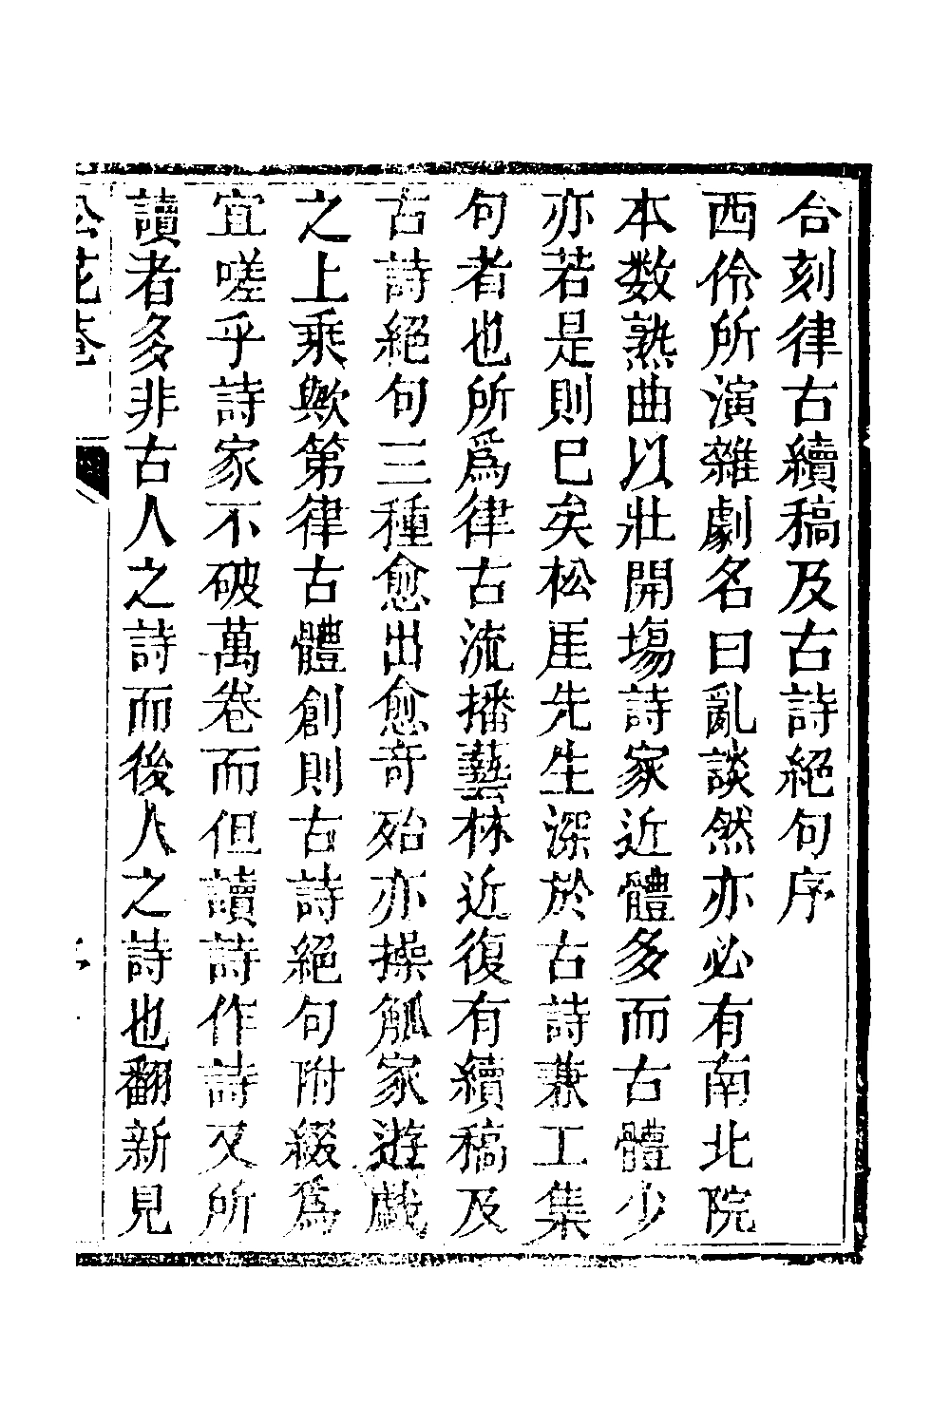 合刻律古續稿及古詩絕句序
西伶所演雜劇名曰亂談然亦必有南北院
本数熟曲以壯開塲詩家近體多而古體少
亦若是則巳矣松厓先生深於古詩兼工集
句者也所爲律古流播藝林近復有續稿及
古詩絕句三種愈出愈竒殆亦操觚家遊戯
之上乘歟第律古體創則古詩絕句附綴爲
宜嗟乎詩家不破萬卷而但讀詩作詩又所
讀者多非古人之詩而後人之詩也翻新見
松花菴